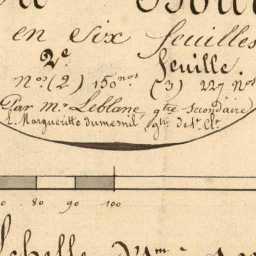 en Six feuilles
2.e feuille.
n.os (2) 150 n.os (3) 227 n.os
Par m.r Leblanc, g.tre secondaire
L. Margueritte dumesnil, g.tre de 1.e Cl.e
80 90 100
Echelle d'1 m.